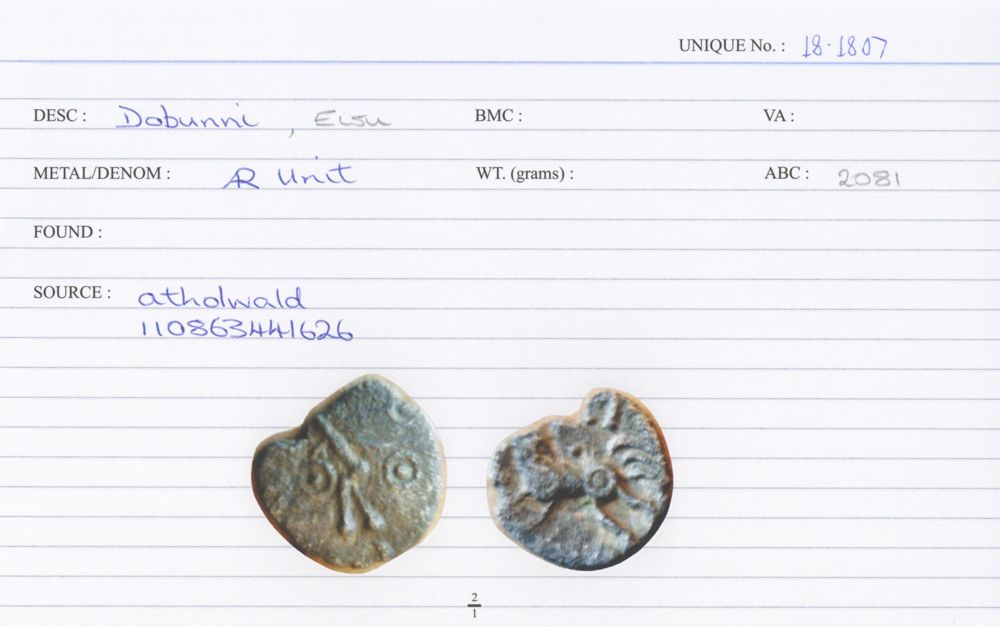 UNIQUE No. : 18-1807
DESC : Dobunni, Eisu BMC : VA :
METAL/DENOM : AR Unit WT. (grams) : ABC : 2081
FOUND :
SOURCE : atholwald
110863441626
2
1